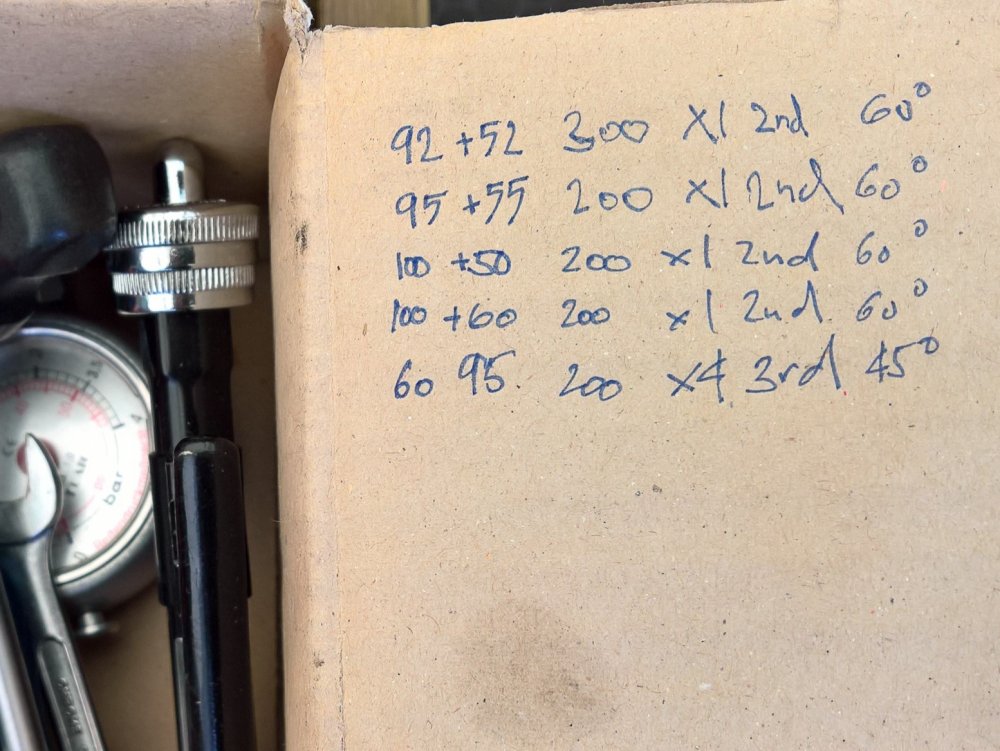 92 +52 300 x1 2nd 60°
95 +55 200 x1 2nd 60°
100 +50 200 x1 2nd 60°
100 +60 200 x1 2nd 60°
60 95 200 x4 3rd 45°
4
bar